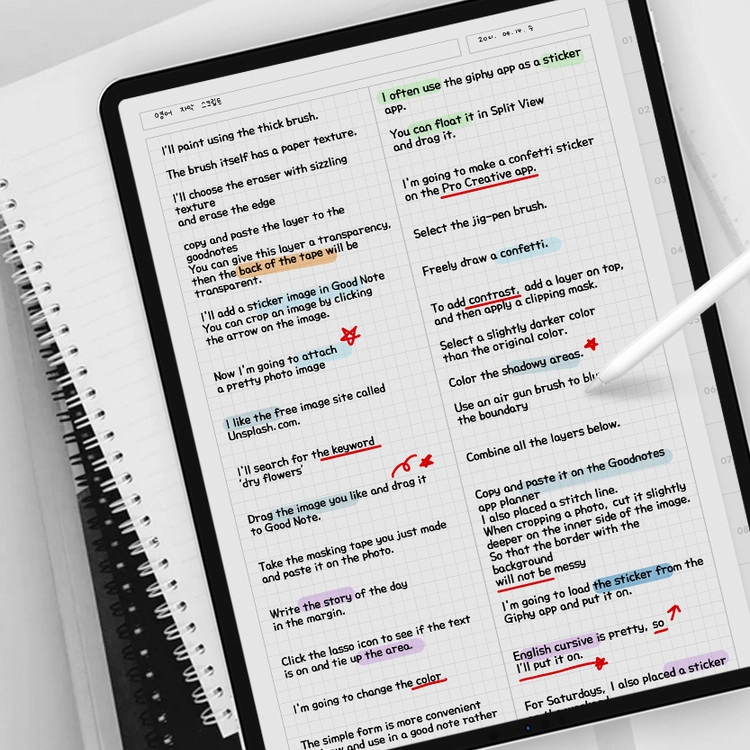 영어 자막 스크립트
2021. 04. 14. 수
I'll paint using the thick brush.
The brush itself has a paper texture.
I'll choose the eraser with sizzling
texture
and erase the edge
copy and paste the layer to the
goodnotes
You can give this layer a transparency,
then the back of the tape will be
transparent.
I'll add a sticker image in Good Note
You can crop an image by clicking
the arrow on the image.
Now I'm going to attach
a pretty photo image
I like the free image site called
Unsplash.com.
I'll search for the keyword
'dry flowers'
Drag the image you like and drag it
to Good Note.
Take the masking tape you just made
and paste it on the photo.
Write the story of the day
in the margin.
Click the lasso icon to see if the text
is on and tie up the area.
I'm going to change the color
The simple form is more convenient
and use in a good note rather
I often use the giphy app as a sticker
app.
You can float it in Split View
and drag it.
I'm going to make a confetti sticker
on the Pro Creative app.
Select the jig-pen brush.
Freely draw a confetti.
To add contrast, add a layer on top,
and then apply a clipping mask.
Select a slightly darker color
than the original color.
Color the shadowy areas.
Use an air gun brush to
the boundary
Combine all the layers below.
Copy and paste it on the Goodnotes
app planner
I also placed a stitch line.
When cropping a photo, cut it slightly
deeper on the inner side of the image.
So that the border with the
background
will not be messy
I'm going to load the sticker from the
Giphy app and put it on.
English cursive is pretty, so
I'll put it on.
For Saturdays, I also placed a sticker
01
02
03
04
05
06
07
08